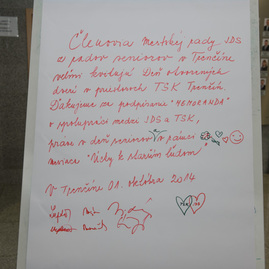 Členovia Mestskej rady JDS
z radov seniorov v Trenčíne
veľmi kvitujú Deň otvorených
dverí v priestoroch TSK Trenčín.
Ďakujeme za podpísanie "MEMORANDA"
o spolupráci medzi JDS a TSK,
práve v deň seniorov v rámci
mesiaca "Úcty k starším ľuďom"
V Trenčíne 01. októbra 2014